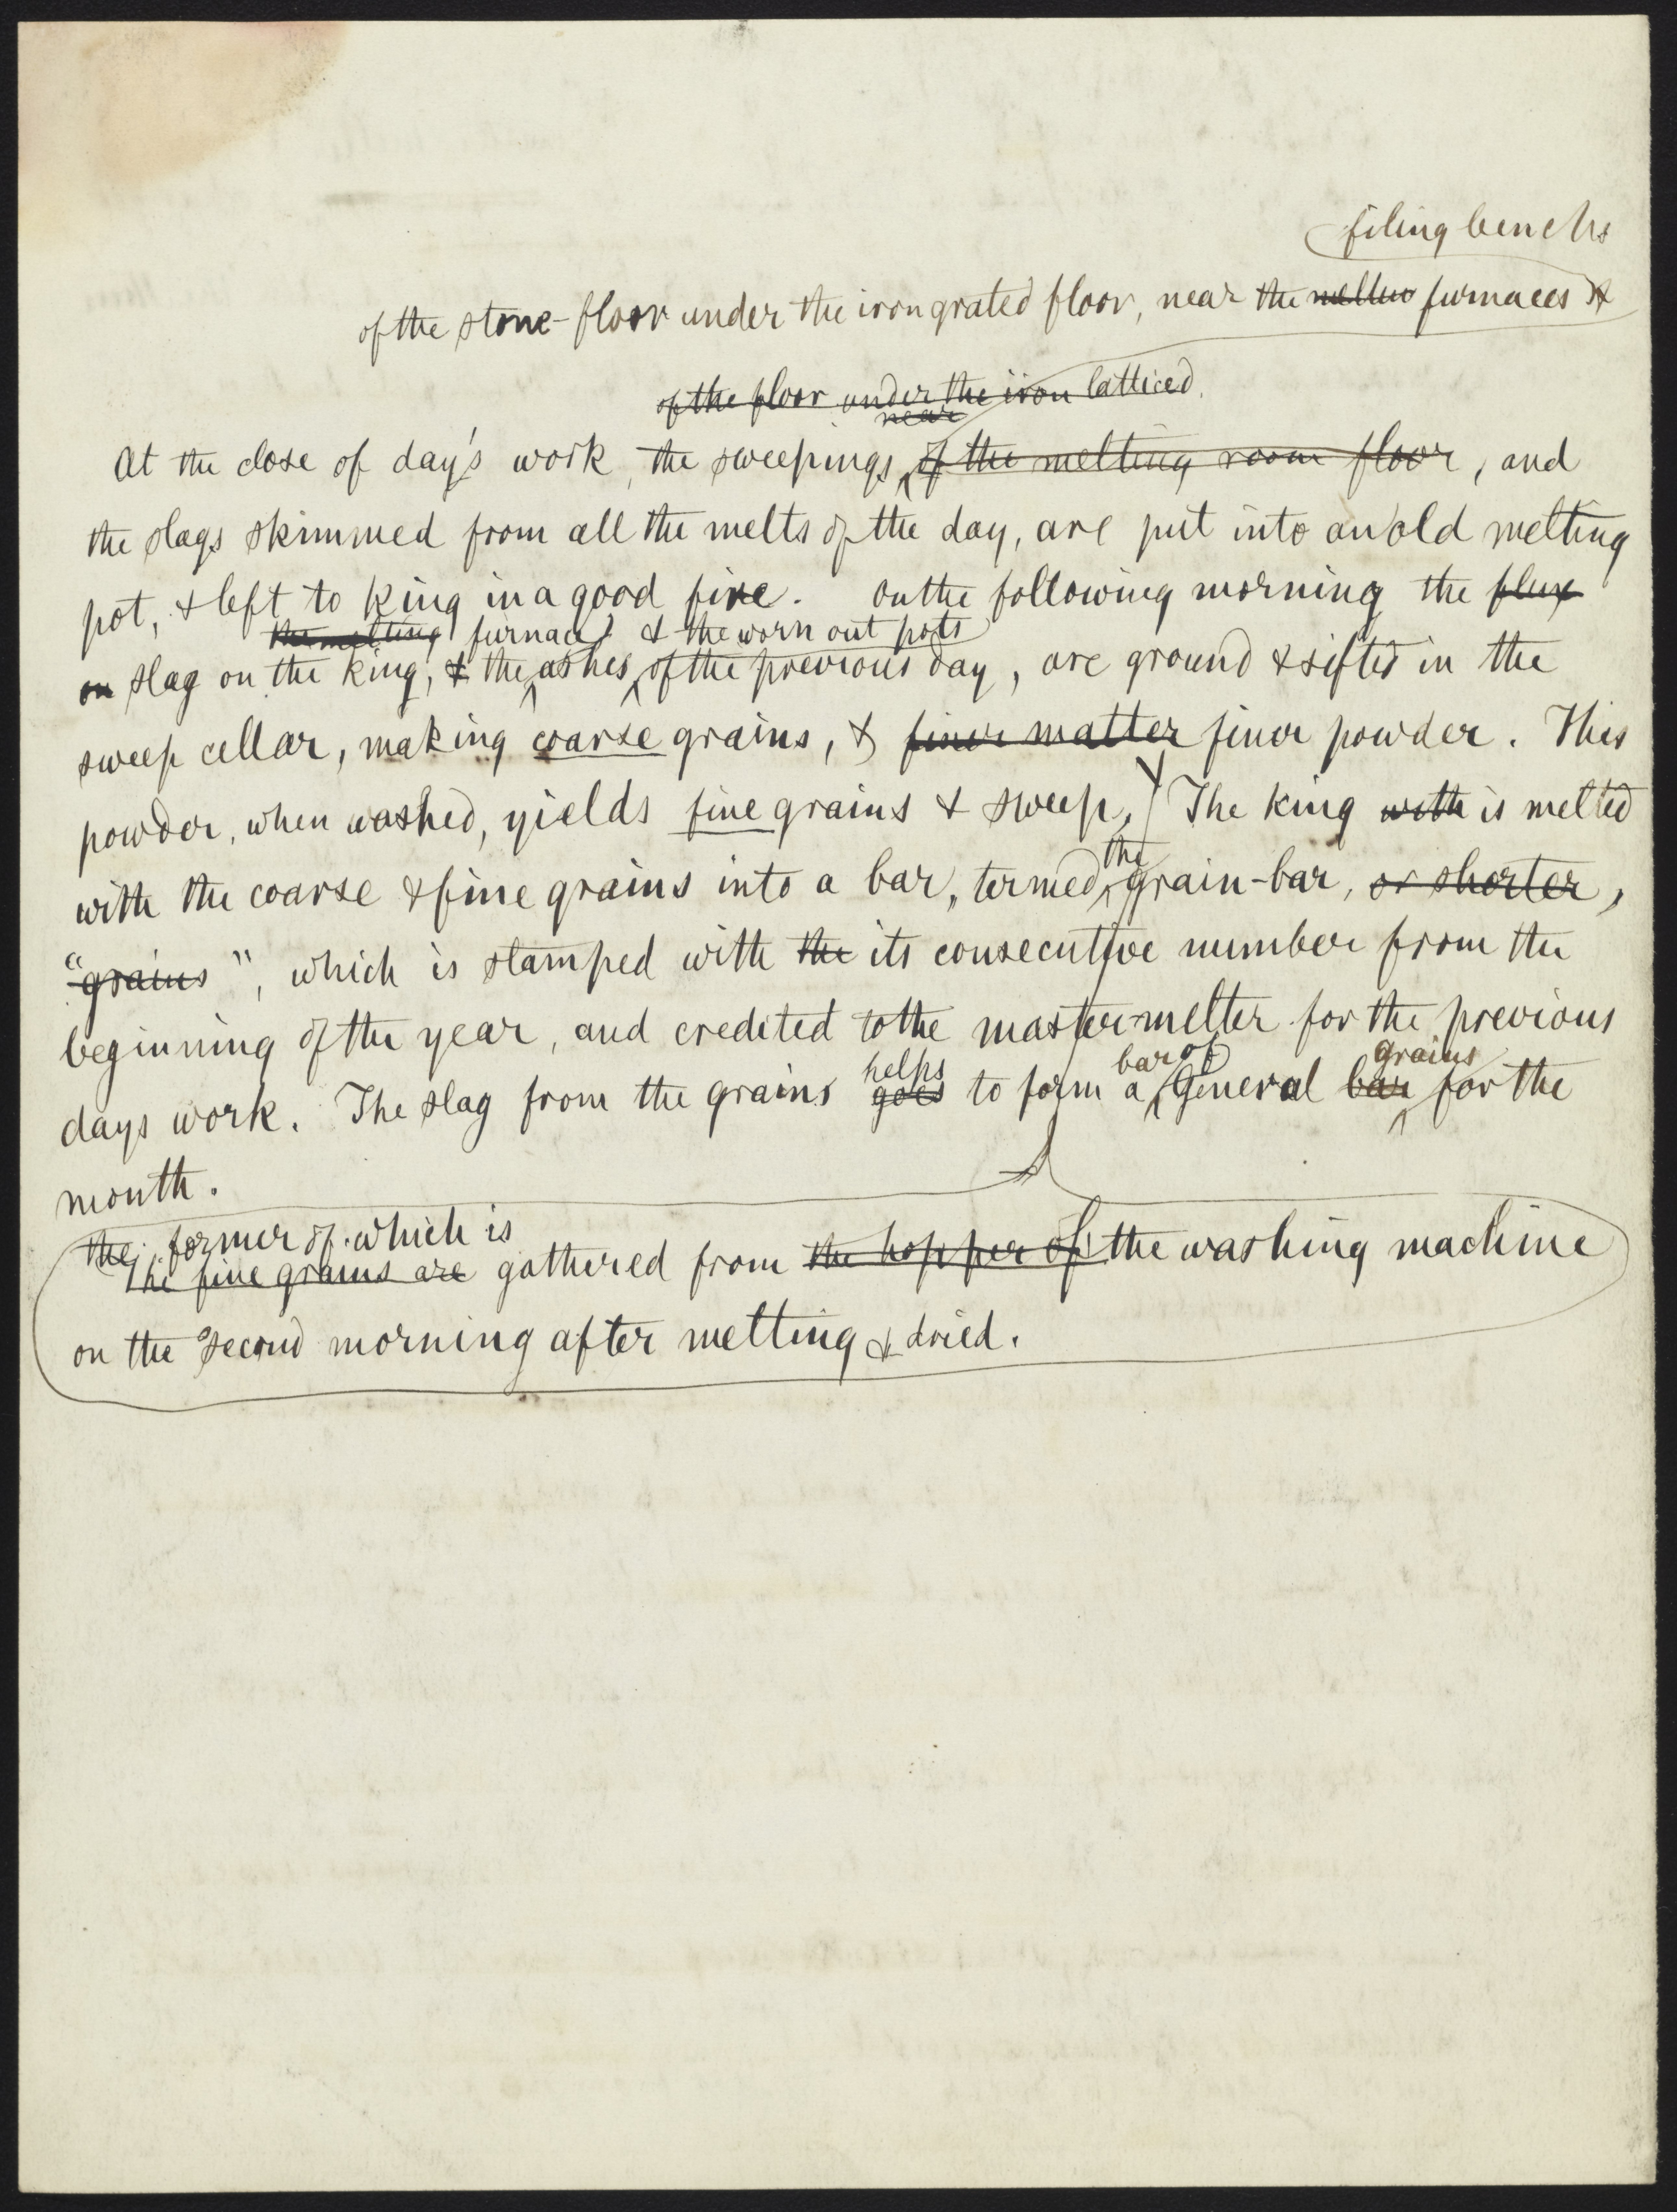 filing benchs
of the stone-floor under the iron grated floor, near the furnaces &
of the floor under the iron latticed
near
At the close of day's work, the sweepings, of the melting room floor, and
the slags skimmed from all the melts of the day, are put into an old melting
pot, & left to king in a good fire. On the following morning the flux
the melting furnace & the worn out pots
on slag on the king, & the ashes of the previous day, are ground & sifted in the
sweep cellar, making coarse grains, & finer matter finer powder. This
powder, when washed, yields fine grains & sweep, The king with is melted
the
with the coarse & fine grains into a bar, termed grain-bar, or shorter,
"grains", which is stamped with the its consecutive number from the
beginning of the year, and credited to the master-melter for the previous
helps bar of grains
days work. The slag from the grains goes to form a General bar for the
month.
the former of which is
The fine grains are gathered from the hopper of the washing machine
on the second morning after melting & dried.